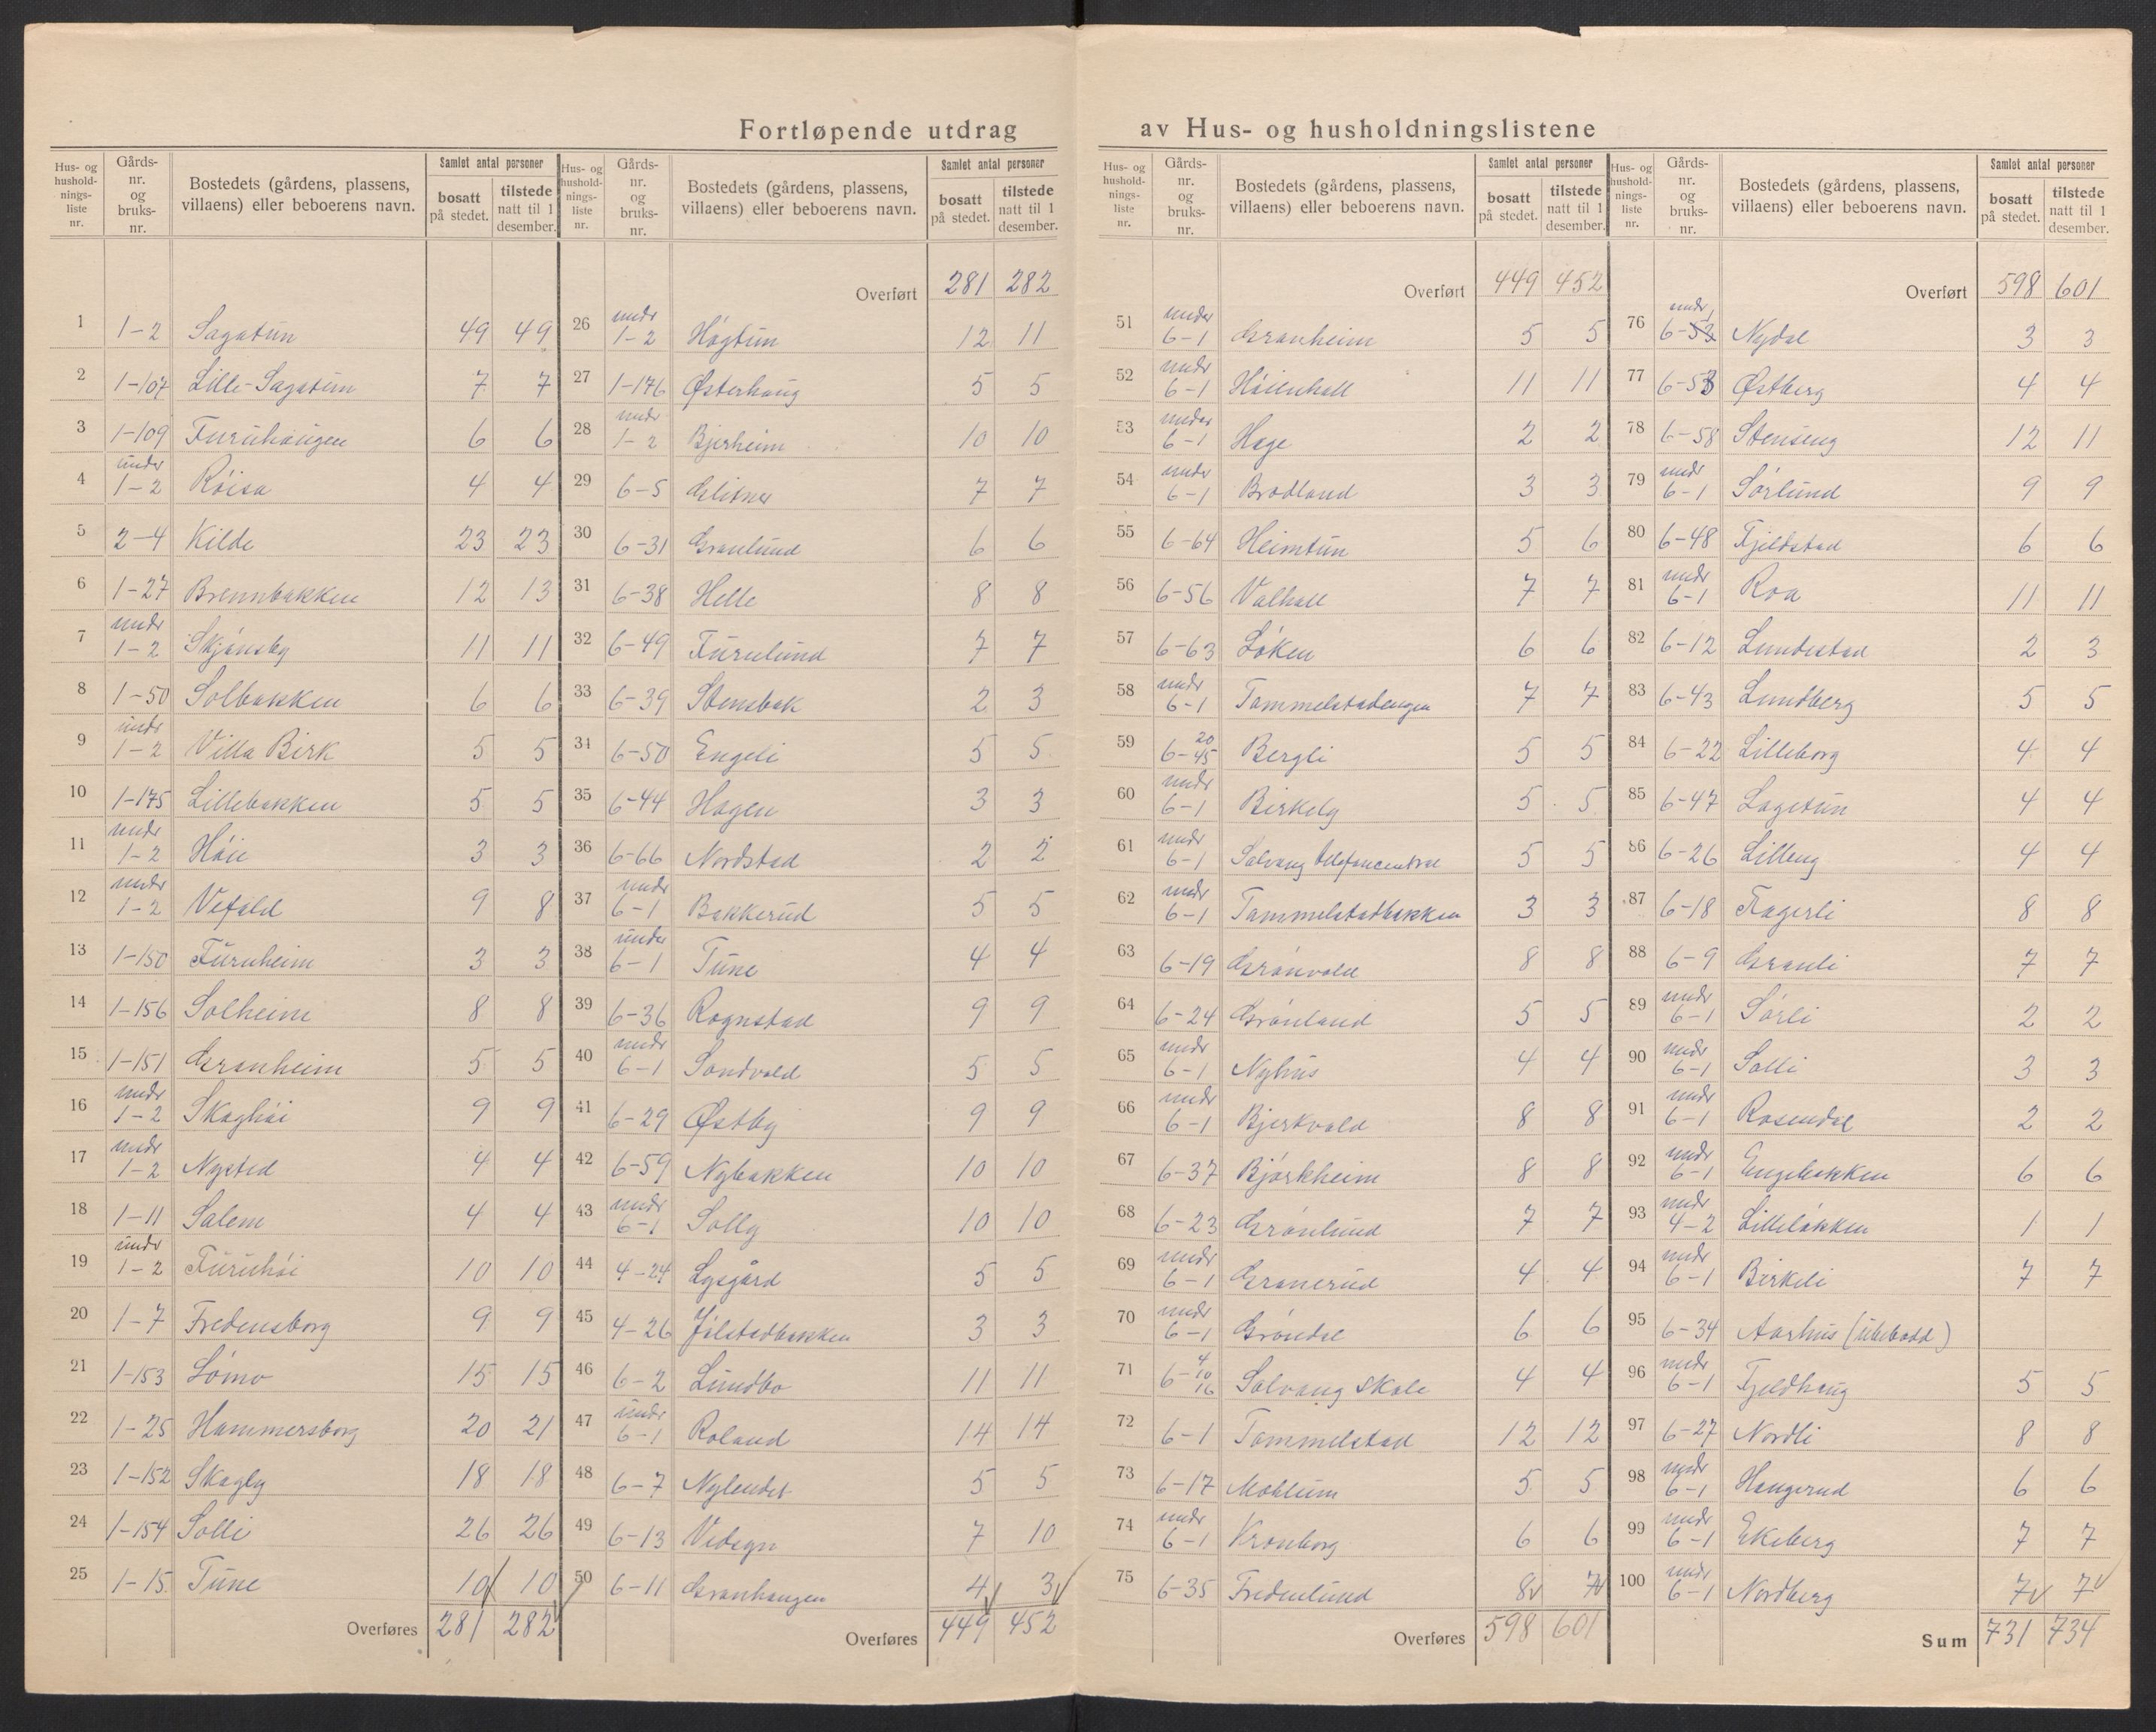 Fortløpende utdrag av Hus- og husholdningslistene
Hus- og husholdnings-liste nr. | Gårds-nr. og bruks-nr. | Bostedets (gårdens, plassens, villaens) eller beboerens navn. | Samlet antal personer bosatt på stedet. | tilstede natt til 1 desember.
1 1-2 Sagatun 49 49
2 1-107 Lille-Sagatun 7 7
3 1-109 Furuhaugen 6 6
4 under 1-2 Røisa 4 4
5 2-4 Kilde 23 23
6 1-27 Brennbakken 12 13
7 undr 1-2 Skjønsby 11 11
8 1-50 Solbakken 6 6
9 undr 1-2 Villa Birk 5 5
10 1-175 Lillebakken 5 5
11 undr 1-2 Høie 3 3
12 undr 1-2 Vefald 9 8
13 1-150 Furuheim 3 3
14 1-156 Solheim 8 8
15 1-151 Granheim 5 5
16 undr 1-2 Skoghøi 9 9
17 undr 1-2 Nysted 4 4
18 1-11 Salem 4 4
19 undr 1-2 Furuhøi 10 10
20 1-7 Fredensborg 9 9
21 1-153 Lømo 15 15
22 1-25 Hammersborg 20 21
23 1-152 Skogly 18 18
24 1-154 Solli 26 26
25 1-15 Tune 10 10
Overføres 281 282
Overført 281 282
26 undr 1-2 Høgtun 12 11
27 1-176 Østerhaug 5 5
28 undr 1-2 Bjerheim 10 10
29 6-5 Glitner 7 7
30 6-31 Granlund 6 6
31 6-38 Helle 8 8
32 6-49 Furulund 7 7
33 6-39 Stensbak 2 3
34 6-50 Engeli 5 5
35 6-44 Hagen 3 3
36 6-66 Nordstad 2 2
37 undr 6-1 Bakkerud 5 5
38 under 6-1 Tune 4 4
39 6-36 Rognstad 9 9
40 undr 6-1 Sandvold 5 5
41 6-29 Østby 9 9
42 6-59 Nybakken 10 10
43 undr 6-1 Solly 10 10
44 4-24 Lysgård 5 5
45 4-26 Jølstadbakken 3 3
46 6-2 Lundbo 11 11
47 undr 6-1 Roland 14 14
48 6-7 Nylendet 5 5
49 6-13 Vidsyn 7 10
50 6-11 Granhaugen 4 3
Overføres 449 452
Overført 449 452
51 under 6-1 Granheim 5 5
52 undr 6-1 Høienhall 11 11
53 under 6-1 Hage 2 2
54 under 6-1 Brodland 3 3
55 6-64 Heimtun 5 6
56 6-56 Valhall 7 7
57 6-63 Løken 6 6
58 undr 6-1 Tommelstadengen 7 7
59 6-20 45 Bergli 5 5
60 undr 6-1 Birkely 5 5
61 undr 6-1 Solvang telefoncentral 5 5
62 undr 6-1 Tommelstadbakken 3 3
63 6-19 Grønvold 8 8
64 6-24 Grønland 5 5
65 undr 6-1 Nyhus 4 4
66 undr 6-1 Bjerkvold 8 8
67 6-37 Bjørkheim 8 8
68 6-23 Grønlund 7 7
69 undr 6-1 Granerud 4 4
70 undr 6-1 Grøndal 6 6
71 6-4 10 16 Solvang skole 4 4
72 6-1 Tommelstad 12 12
73 6-17 Moblum 5 5
74 undr 6-1 Kronborg 6 6
75 6-35 Fredenlund 8 7
Overføres 598 601
Overført 598 601
76 undr 6-53 Nydal 3 3
77 6-53 Østberg 4 4
78 6-58 Stenseng 12 11
79 undr 6-1 Sørlund 9 9
80 6-48 Fjeldstad 6 6
81 undr 6-1 Roa 11 11
82 6-12 Lundestad 2 3
83 6-43 Lundberg 5 5
84 6-22 Lilleborg 4 4
85 6-47 Lagetun 4 4
86 6-26 Lilleng 4 4
87 6-18 Fagerli 8 8
88 6-9 Granli 7 7
89 undr 6-1 Sørli 2 2
90 undr 6-1 Solli 3 3
91 undr 6-1 Rosendal 2 2
92 undr 6-1 Engebakken 6 6
93 undr 4-2 Lilleløkken 1 1
94 undr 6-1 Birkeli 7 7
95 6-34 Aarhus (ubebodd)
96 undr 6-1 Fjeldhaug 5 5
97 6-27 Nordli 8 8
98 undr 6-1 Haugerud 6 6
99 undr 6-1 Ekeberg 7 7
100 undr 6-1 Nordberg 7 7
Sum 731 734